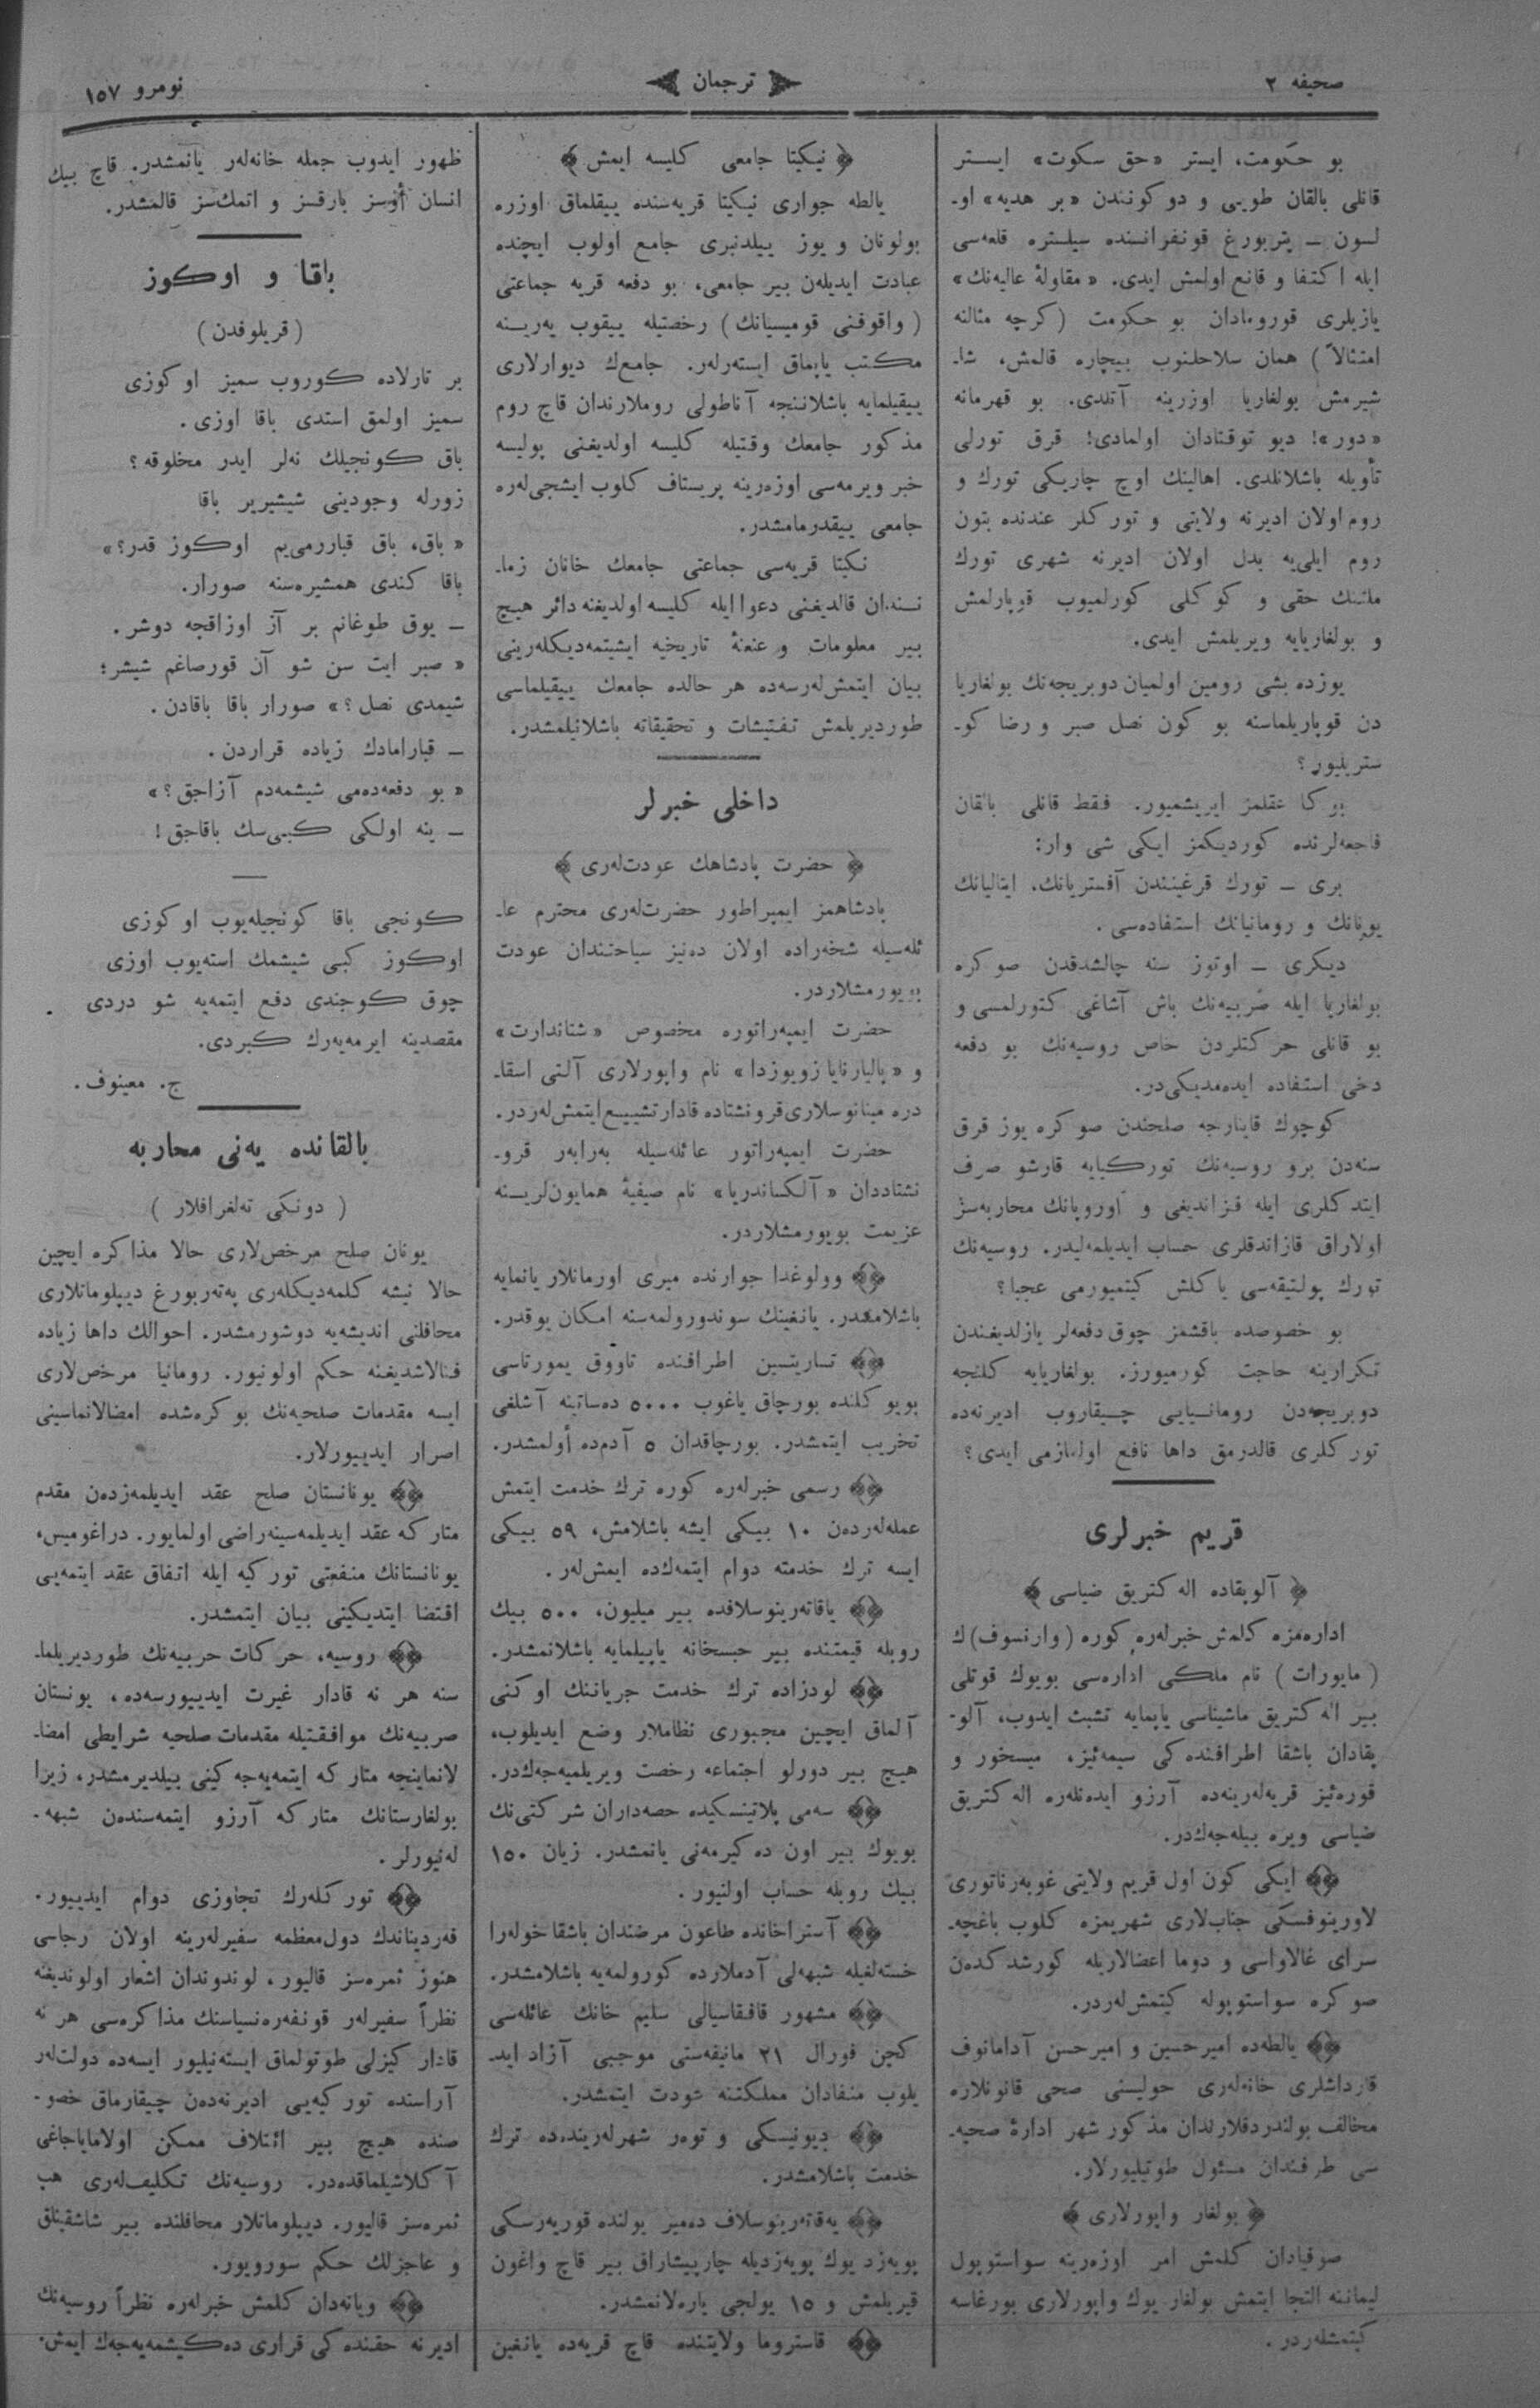 صحيفه ٢
ترجمان
نومرو ١٥٧
بو حكومت، ايستر «حق سكوت» ايستر
قانلى بالقان طويى و دوكونندن «بر هديه» او-
لسون — پتربورغ قونفرانسنده سيليستره قلعه‌سى
ايله اكتفا و قانع اولمش ايدى. «مقاولهٔ عاليه‌نك»
يازيلرى قورومادان بو حكومت (كرچه مثالنه
امتثالاً) همان سلاحلنوب بيچاره قالمش، شا-
شيرمش بولغاريا اوزرينه آتلدى. بو قهرمانه
«دور»! ديو توقتادان اولمادى! قرق تورلى
تأويله باشلانلدى. اهالينك اوچ چاريكى تورك و
روم اولان اديرنه ولايتى و توركلر عندنده بتون
روم ايلى‌يه بدل اولان اديرنه شهرى تورك
ملتنك حقى و كوكلى كورلميوب قوپارلمش
و بولغاريايه ويريلمش ايدى.
يوزده بشى رومين اولميان دوبريجه‌نك بولغاريا
دن قوپاريلماسنه بو كون نصل صبر و رضا كو-
ستريليور؟
بوكا عقلمز ايريشميور. فقط قانلى بالقان
فاجعه‌لرنده كورديكمز ايكى شى وار:
برى — تورك قرغينندن آفستريانك، ايتاليانك
يونانك و رومانيانك استفاده‌سى.
ديكرى — اوتوز سنه چالشدقدن صوكره
بولغاريا ايله صربيه‌نك باش آشاغى كتورلمسى و
بو قانلى حركتلردن خاص روسيه‌نك بو دفعه
دخى استفاده ايده‌مديكى‌در.
كوچوك قاينارجه صلحندن صوكره يوز قرق
سنه‌دن برو روسيه‌نك توركيايه قارشو صرف
ايتدكلرى ايله قزانديغى و آوروپانك محاربه‌سز
اولاراق قازاندقلرى حساب ايديلمه‌ليدر. روسيه‌نك
تورك پولتيقه‌سى ياكلش كيتميورمى عجبا؟
بو خصوصده باقشمز چوق دفعه‌لر يازلديغندن
تكرارينه حاجت كورميورز. بولغاريايه كلنجه
دوبريجه‌دن رومانيايى چيقاروب اديرنه‌ده
توركلرى قالدرمق داها نافع اولمازمى ايدى؟
قريم خبرلرى
﴿ آلوپقاده اله‌كتريق ضياسى ﴾
اداره‌مزه كلمش خبرلره كوره (وارنسوف)ك
(مايورات) نام ملكى اداره‌سى بويوك قوتلى
بير اله‌كتريق ماشيناسى ياپمايه تشبث ايدوب، آلو-
پقادان باشقا اطرافنده‌كى سيمه‌ئيز، ميسخور و
قوره‌ئيز قريه‌لرينه‌ده آرزو ايده‌نلره اله‌كتريق
ضياسى ويره بيله‌جه‌كدر.
ايكى كون اول قريم ولايتى غوبه‌رناتورى
لاورينوفسكى جنابلارى شهريمزه كلوب باغچه-
سراى غالاواسى و دوما اعضالاريله كورشدكدن
صوكره سواستوپوله كيتمش‌لردر.
يالطه‌ده اميرحسين و اميرحسن آدامانوف
قارداشلرى خانه‌لرى حوليسنى صحى قانونلاره
مخالف بولندردقلارندان مذكور شهر ادارهٔ صحيه-
سى طرفندان مسئول طوتيليورلار.
﴿ بولغار واپورلارى ﴾
صوفيادان كلمش امر اوزه‌رينه سواستوپول
ليماننه التجا ايتمش بولغار يوك واپورلارى بورغاسه
كيتمشله‌ردر.
﴿ نيكيتا جامعى كليسه ايمش ﴾
يالطه جوارى نيكيتا قريه‌سنده ييقلماق اوزره
بولونان و يوز ييلدنبرى جامع اولوب ايچنده
عبادت ايديلەن بير جامعى، بو دفعه قريه جماعتى
(واقوفنى قوميسيانك) رخصتيله ييقوب يه‌رينه
مكتب ياپماق ايسته‌رلر. جامعك ديوارلارى
ييقيلمايه باشلاننجه آناطولى روملارندان قاچ روم
مذكور جامعك وقتيله كليسه اولديغنى پوليسه
خبر ويرمه‌سى اوزه‌رينه پريستاف كلوب ايشجى‌لره
جامعى ييقدرمامشدر.
نكيتا قريه‌سى جماعتى جامعك خانان زما-
نندان قالديغنى دعوا ايله كليسه اولديغنه دائر هيچ
بير معلومات و عنعنهٔ تاريخيه ايشيتمه‌ديكله‌رينى
بيان ايتمش‌لرسه‌ده هر حالده جامعك ييقيلماسى
طورديريلمش تفتيشات و تحقيقاته باشلانيلمشدر.
داخلى خبرلر
﴿ حضرت پادشاهك عودت‌لرى ﴾
پادشاهمز ايمپراطور حضرت‌لرى محترم عا-
ئله‌سيله شخه‌راده اولان ده‌نيز سياحتندان عودت
بويورمشلاردر.
حضرت ايمپه‌راتوره مخصوص «شتاندارت»
و «پاليارنايا زويوزدا» نام واپورلارى آلتى اسقا-
دره مينانوسلارى قرونشتاده قادار تشييع ايتمش‌لردر.
حضرت ايمپه‌راتور عائله‌سيله به‌رابه‌ر قرو-
نشتاددان «آلكساندريا» نام صيفيهٔ همايونلرينه
عزيمت بويورمشلاردر.
وولوغدا جوارنده ميرى اورمانلار يانمايه
باشلامشدر. يانغينك سوندورولمه‌سنه امكان يوقدر.
تساريتسين اطرافنده تاووق يمورتاسى
بويوكلنده بورچاق ياغوب ٥٠٠٠ ده‌ساتينه آشلغى
تخريب ايتمشدر. بورچاقدان ٥ آدم‌ده أولمشدر.
رسمى خبرلره كوره ترك خدمت ايتمش
عمله‌لردن ١٠ بيكى ايشه باشلامش، ٥٩ بيكى
ايسه ترك خدمته دوام ايتمه‌كده ايمش‌لر.
ياقاته‌رينوسلافده بير ميليون، ٥٠٠ بيك
روبله قيمتنده بير حبسخانه ياپيلمايه باشلانمشدر.
لودزاده ترك خدمت جرياننك اوكنى
آلماق ايچين مجبورى نظاملار وضع ايديلوب،
هيچ بير دورلو اجتماعه رخصت ويريلميه‌جه‌كدر.
سه‌مى پلاتينسكيده حصه‌داران شركتى‌نك
بويوك بير اون ده‌كيرمه‌نى يانمشدر. زيان ١٥٠
بيك روبله حساب اولنيور.
آستراخانده طاعون مرضندان باشقا خولرا
خسته‌لغيله شبهه‌لى آدملارده كورولمه‌يه باشلامشدر.
مشهور قافقاسيالى سليم خانك عائله‌سى
كچن فورال ٢١ مانيفستى موجبى آزاد ايد-
يلوب منفادان مملكتنه عودت ايتمشدر.
ديونيسكى و توه‌ر شهرلرينده‌ده ترك
خدمت باشلامشدر.
يه‌قاته‌رينوسلاف ده‌مير يولنده قوريه‌رسكى
پويه‌زد يوك پويه‌زديله چارپيشاراق بير قاچ واغون
قيريلمش و ١٥ يولجى ياره‌لانمشدر.
قاستروما ولايتنده قاچ قريه‌ده يانغين
ظهور ايدوب جمله خانه‌لر يانمشدر. قاچ بيك
انسان أوسز بارقسز و اتمك‌سز قالمشدر.
باقا و اوكوز
(قريلوفدن)
بر تارلاده كوروب سميز اوكوزى
سميز اولمق استدى باقا اوزى.
باق كونجيلك نه‌لر ايدر مخلوقه؟
زورله وجودينى شيشيرير باقا
«باق، باق قباررمى‌يم اوكوز قدر؟»
باقا كندى همشيره‌سنه صورار.
— يوق طوغانم بر آز اوزاقجه دوشر.
«صبر ايت سن شو آن قورصاغم شيشر؛
شيمدى نصل؟» صورار باقا باقادن.
— قبارامادك زياده قراردن.
«بو دفعه‌ده‌مى شيشمه‌دم آزاجق؟»
— ينه اولكى كبى‌سك باقاجق!
كونجى باقا كونجيله‌يوب اوكوزى
اوكوز كبى شيشمك استه‌يوب اوزى
چوق كوجندى دفع ايتمه‌يه شو دردى
مقصدينه ايرمه‌يه‌رك كبردى.
ج. معينوف.
بالقانده يه‌نى محاربه
(دونكى ته‌لغرافلار)
يونان صلح مرخص‌لارى حالا مذاكره ايچين
حالا نيشه كلمه‌ديكله‌رى په‌ته‌ربورغ ديپلوماتلارى
محافلنى انديشه‌يه دوشورمشدر. احوالك داها زياده
فنالاشديغنه حكم اولونيور. رومانيا مرخص‌لارى
ايسه مقدمات صلحيه‌نك بوكره‌شده امضالانماسينى
اصرار ايدييورلار.
يونانستان صلح عقد ايديلمه‌زدەن مقدم
متاركه عقد ايديلمه‌سينه راضى اولمايور. دراغوميس،
يونانستانك منفعتى توركيه ايله اتفاق عقد ايتمه‌يى
اقتضا ايتديكينى بيان ايتمشدر.
روسيه، حركات حربيه‌نك طورديريلما-
سنه هر نه قادار غيرت ايدييورسه‌ده، يونستان
صربيه‌نك موافقتيله مقدمات صلحيه شرايطى امضا-
لانماينجه متاركه ايتمه‌يه‌جه‌كينى بيلديرمشدر، زيرا
بولغارستانك متاركه آرزو ايتمه‌سندەن شبهه-
لەنيورلر.
توركله‌رك تجاوزى دوام ايدييور.
فه‌رديناندك دول معظمه سفيرلرينه اولان رجاسى
هنوز ثمره‌سز قاليور، لوندوندان اشعار اولونديغنه
نظراً سفيرلر قونفه‌ره‌نسياسنك مذاكره‌سى هر نه
قادار كيزلى طوتولماق ايسته‌نيليور ايسه‌ده دولت‌لر
آراسنده توركيه‌يى اديرنه‌دەن چيقارماق خصو-
صنده هيچ بير ائتلاف ممكن اولاماياجاغى
آكلاشيلماقده‌در. روسيه‌نك تكليف‌لرى هپ
ثمره‌سز قاليور. ديپلوماتلار محافلنده بير شاشقينلق
و عاجزلك حكم سورويور.
ويانه‌دان كلمش خبرلره نظراً روسيه‌نك
اديرنه حقنده‌كى قرارى ده‌كيشمه‌يه‌جه‌ك ايمش.